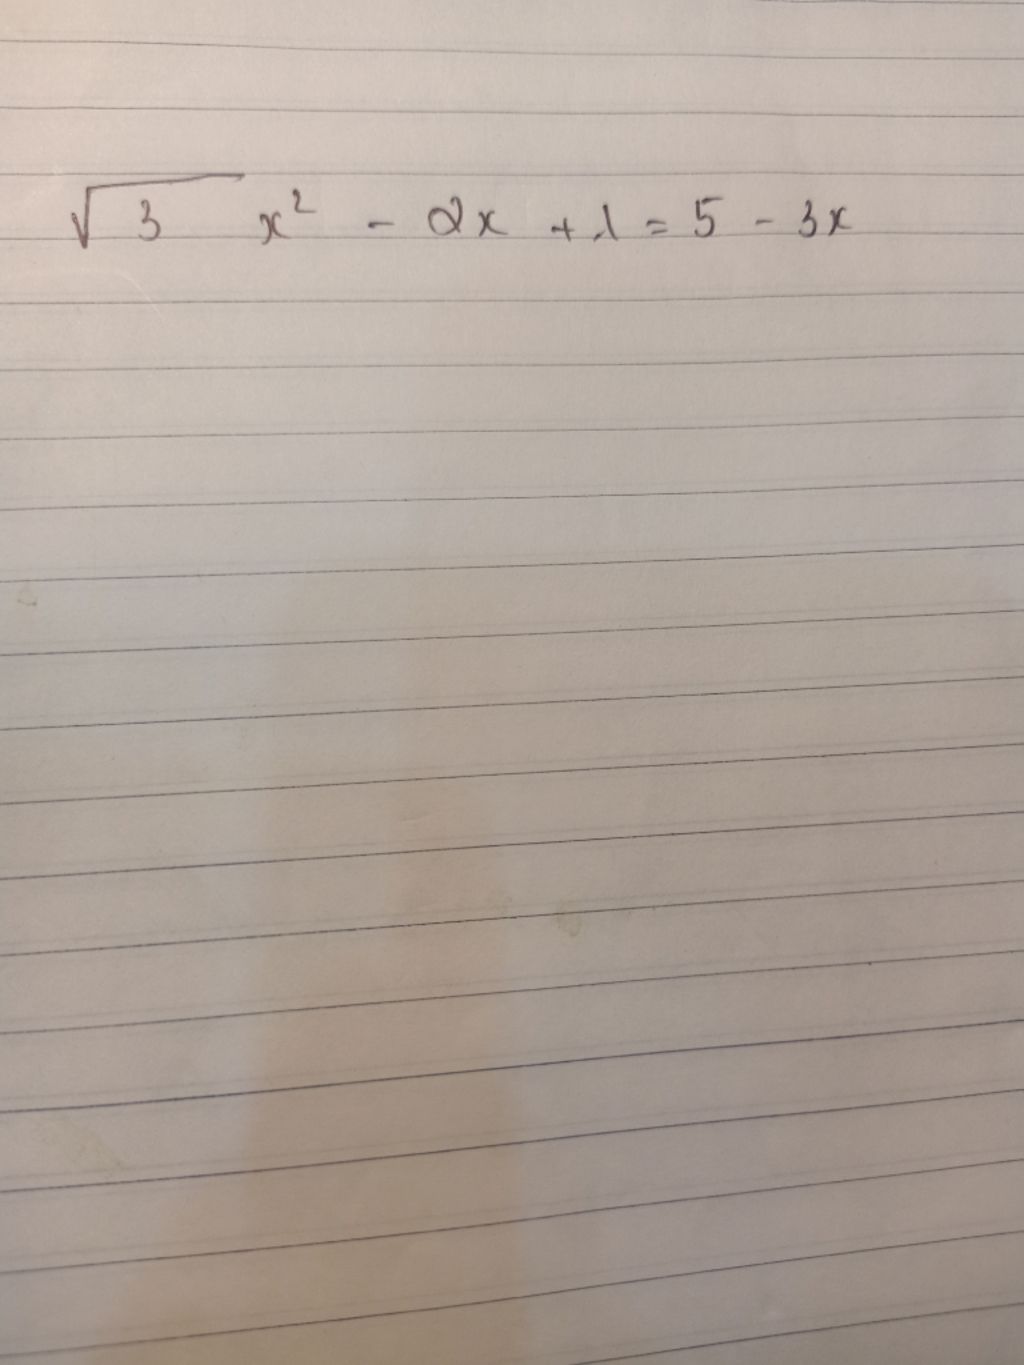 √3 x² - 2x + 1 = 5 - 3x